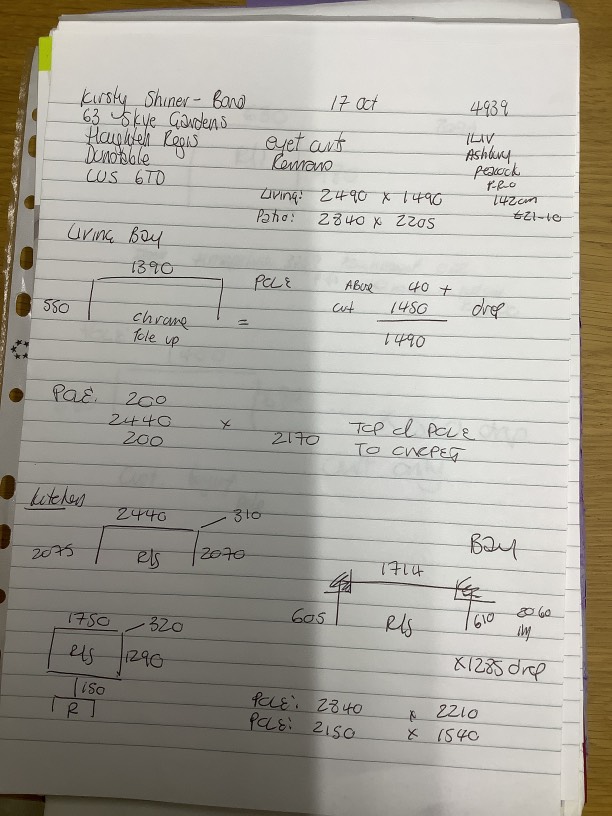 Kirsty Shiner-Bond
17 Oct
4939
63 Skye Gardens
Houghton Regis
Dunstable
LU5 6TD
eyelet curts
Romano
Living: 2490 x 1490
Patio: 2840 x 2205
Ashbury
Peacock
142cm
£21-10
Living Bay
1390
550
chrome
Pole up
=
POLE
Above 40 +
cut 1450 drop
1490
Pole. 200
2440 x 2170 TOP of POLE
200 TO CARPET
Kitchen
2440 310
2075 R/S 2070
Bay
1714
605 R/S 610 2060
x1285 drop
1750 320
R/S 1290
150
R
Pole: 2840 x 2210
Pole: 2150 x 1540